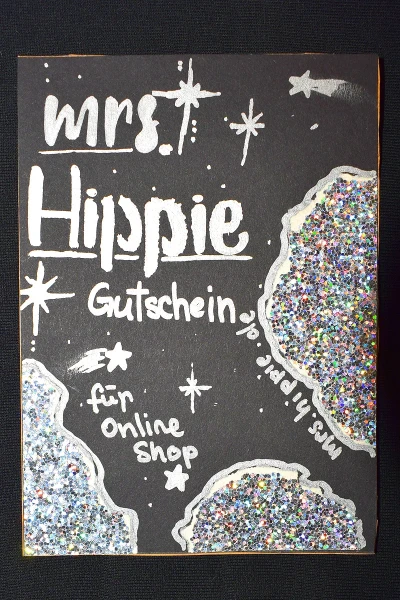 mrs.
Hippie
Gutschein
mrs.hippie.de
für
Online
Shop